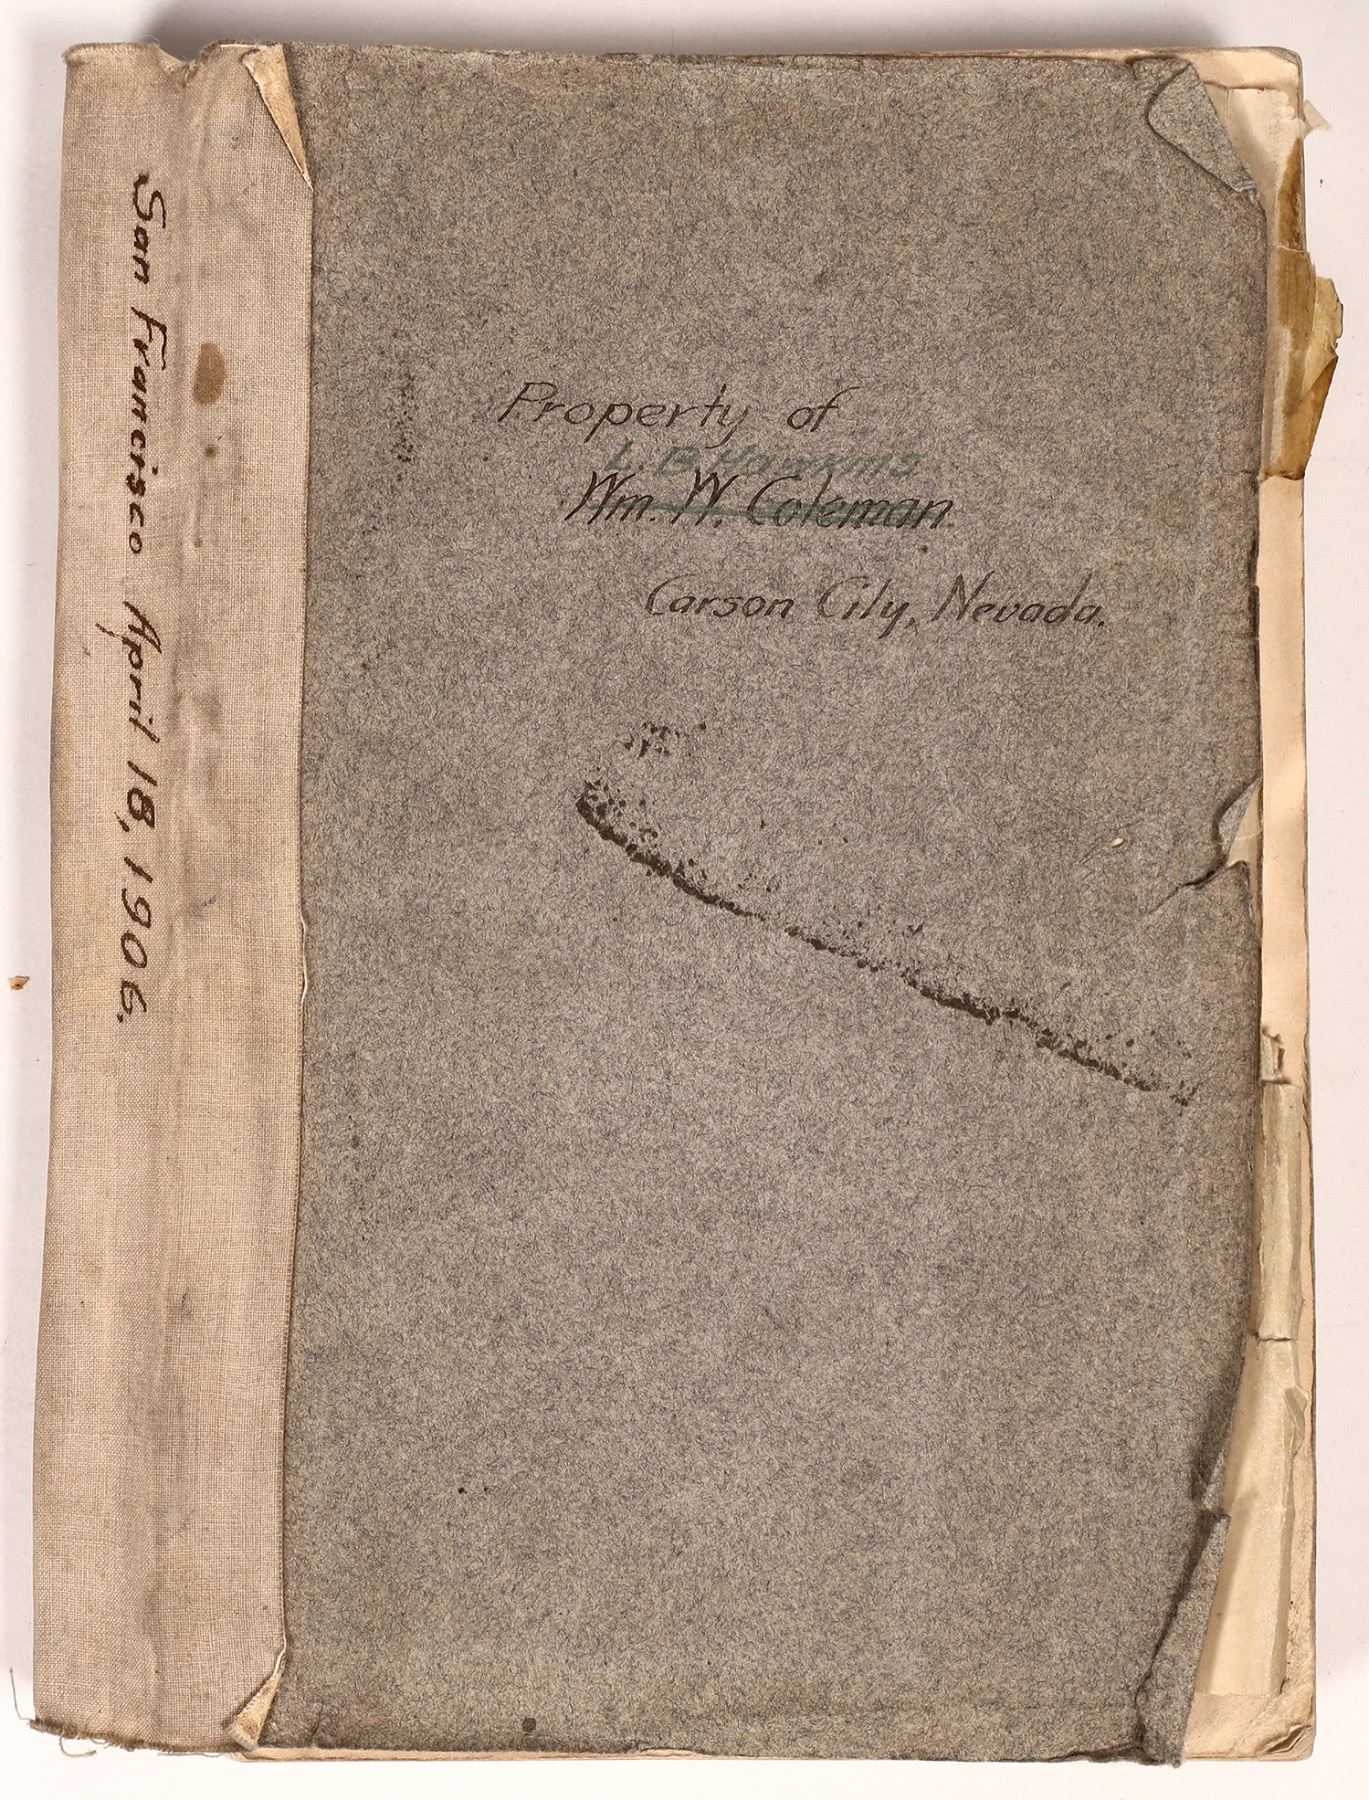 San Francisco April 18, 1906.
Property of
L. B Hawkins
Wm. W. Coleman.
Carson City, Nevada.